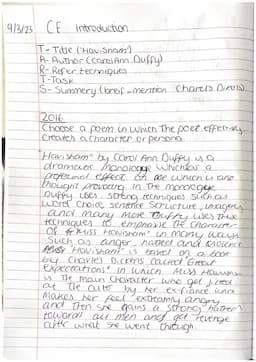 9/3/23 CE Introduction
T- Title ('Havisham')
A- Author (Carol Ann Duffy)
R- Refer techniques
T- Task
S- Summery (breif-mention Charels Dicens)
2016
Choose a poem in which the poet effectively
creates a character or persona.
"Havisham" by Carol Ann Duffy is a
dramatic monologue which has a
profound effect on me which is one
thought provoking in the monologue
Duffy uses strong techniques such as
word choice, sentence structure, imagery
and many more Duffy uses these
techniques to emphasise the character
of Miss Havisham in many ways
such as anger, hatred and violence
Havisham is based on a book
by Charles Dicens called "Great
Expectations" in which Miss Havisham
is the main character who got jilted
at the alter by her ex-fiance who
makes her feel extreamly angry
and then she gains a strong hatred
towards all men and get revenge
after what she went through.